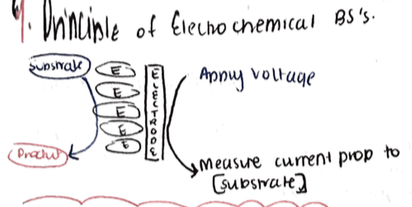 Principle of Electrochemical BS's.
Substrate
E
E
E
E
E
ELECTRODE
Apply voltage
Product
Measure current prop to
[substrate]